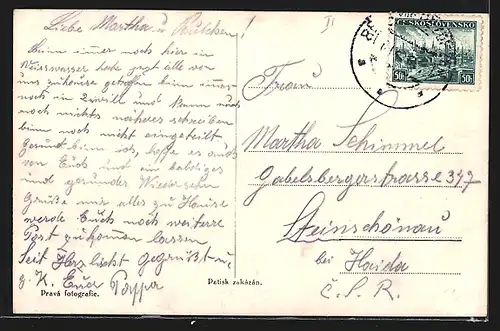 Liebe Martha u. Putchen!
Binn immer noch hier in
Weisswasser habe jetzt alle von
uns zuhause getroffen binn immer
noch in Zivill und kann auch
noch nichts näheres schreiben
binn noch nicht eingeteilt
Gesund binn ich, hoffe es auch
von Euch und ein baldiges
und gesundes Wiedersehn
Grüsse mir alles zu Hause
werde Euch noch weitere
Post zukommen lassen
Seit Herzlichst Gegrüßt u.
g. K. Euer Pappa
Pravá fotografie.
Patisk zakázán.
II
ČESKOSLOVENSKO
50h 50h
Frau
Martha Schimmel
Gabelsbergerstrasse 397
Steinschönau
bei Haida
Č. S. R.